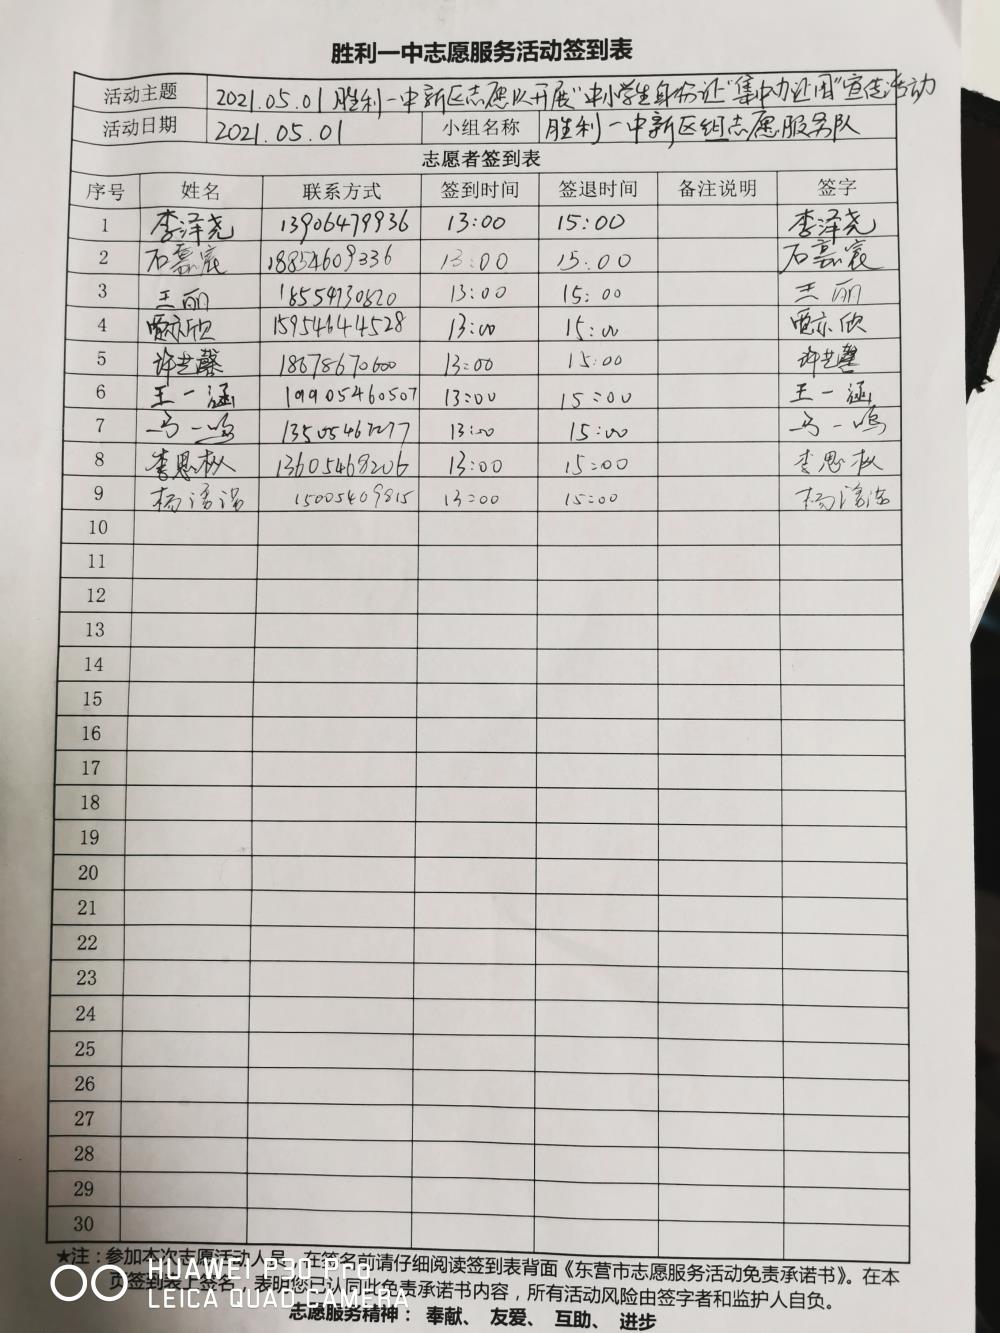 胜利一中志愿服务活动签到表
活动主题 2021.05.01胜利一中新区志愿队开展"中小学生身份证"集中办证周"宣传活动
活动日期 2021.05.01 小组名称 胜利一中新区组志愿服务队
志愿者签到表
序号 姓名 联系方式 签到时间 签退时间 备注说明 签字
1 李泽尧 13906479936 13:00 15:00 李泽尧
2 石嘉宸 18854609336 13:00 15:00 石嘉宸
3 王丽 13:00 15:00 王丽
4 贾亦欣 15954644528 13:00 15:00 贾亦欣
5 许艺馨 18678670600 13:00 15:00 许艺馨
6 王一涵 19905460507 13:00 15:00 王一涵
7 马一鸣 13:00 15:00 马一鸣
8 李思枞 13605468206 13:00 15:00 李思枞
9 杨 15005469815 13:00 15:00 杨
10
11
12
13
14
15
16
17
18
19
20
21
22
23
24
25
26
27
28
29
30
★注：参加本次志愿活动人员，在签名前请仔细阅读签到表背面《东营市志愿服务活动免责承诺书》。在本
页签到表上签名，表明您已认同此免责承诺书内容，所有活动风险由签字者和监护人自负。
志愿服务精神： 奉献、 友爱、 互助、 进步
HUAWEI P30 Pro
LEICA QUAD CAMERA